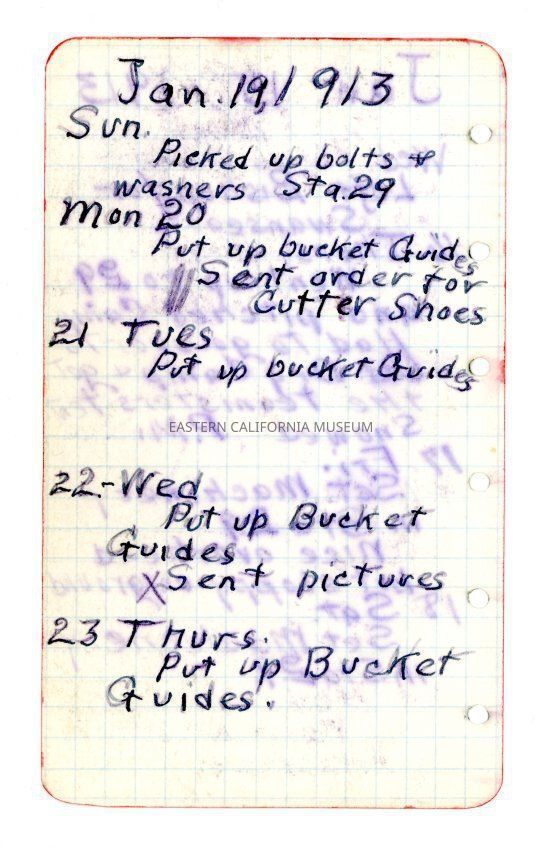 Jan. 19, 1913
Sun.
Picked up bolts &
washers Sta. 29
Mon 20
Put up bucket Guides
Sent order for
Cutter Shoes
21 Tues
Put up bucket Guides
EASTERN CALIFORNIA MUSEUM
22-Wed
Put up Bucket
Guides
X Sent pictures
23 Thurs.
Put up Bucket
Guides.